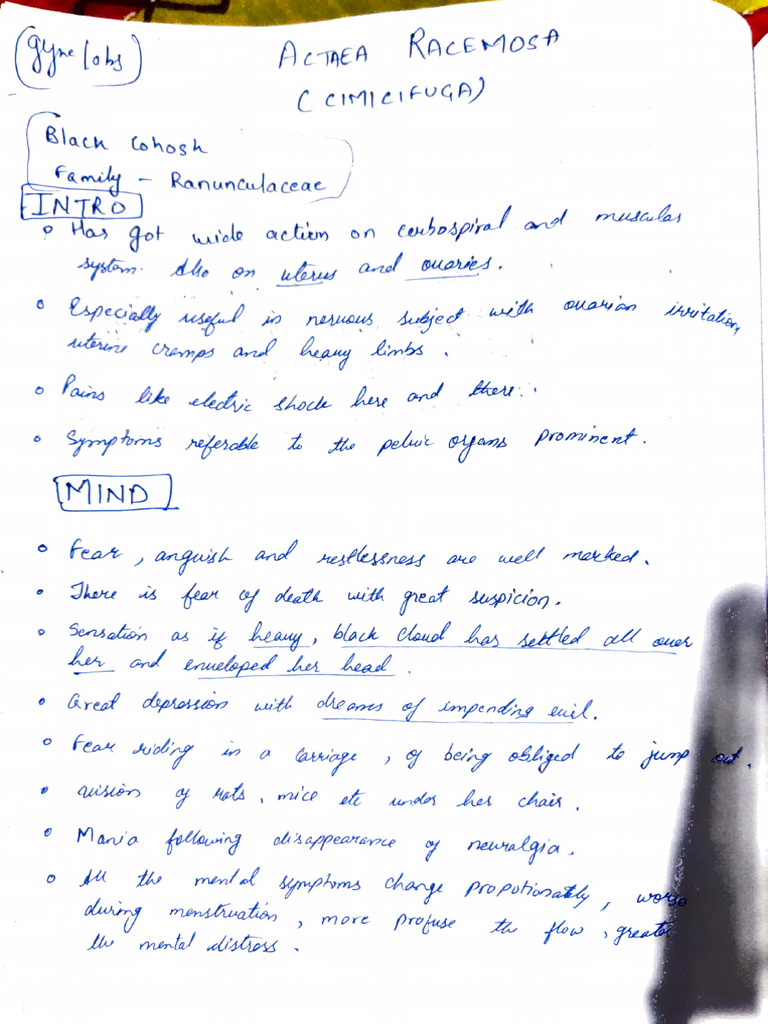 (gyne/obs)
ACTAEA RACEMOSA
(CIMICIFUGA)
Black Cohosh
Family - Ranunculaceae
INTRO
Has got wide action on cerbospiral and muscular
system. Also on uterus and ovaries.
Especially useful in nervous subject with ovarian irritation,
uterine cramps and heavy limbs.
Pains like electric shock here and there.
Symptoms referable to the pelvic organs prominent.
MIND
Fear, anguish and restlessness are well marked.
There is fear of death with great suspicion.
Sensation as if heavy, black cloud has settled all over
her and enveloped her head.
Great depression with dreams of impending evil.
Fear riding in a carriage, of being obliged to jump out.
vision of rats, mice etc under her chair.
Mania following disappearance of neuralgia.
All the mental symptoms change propotionately, worse
during menstruation, more profuse the flow, greater
the mental distress.